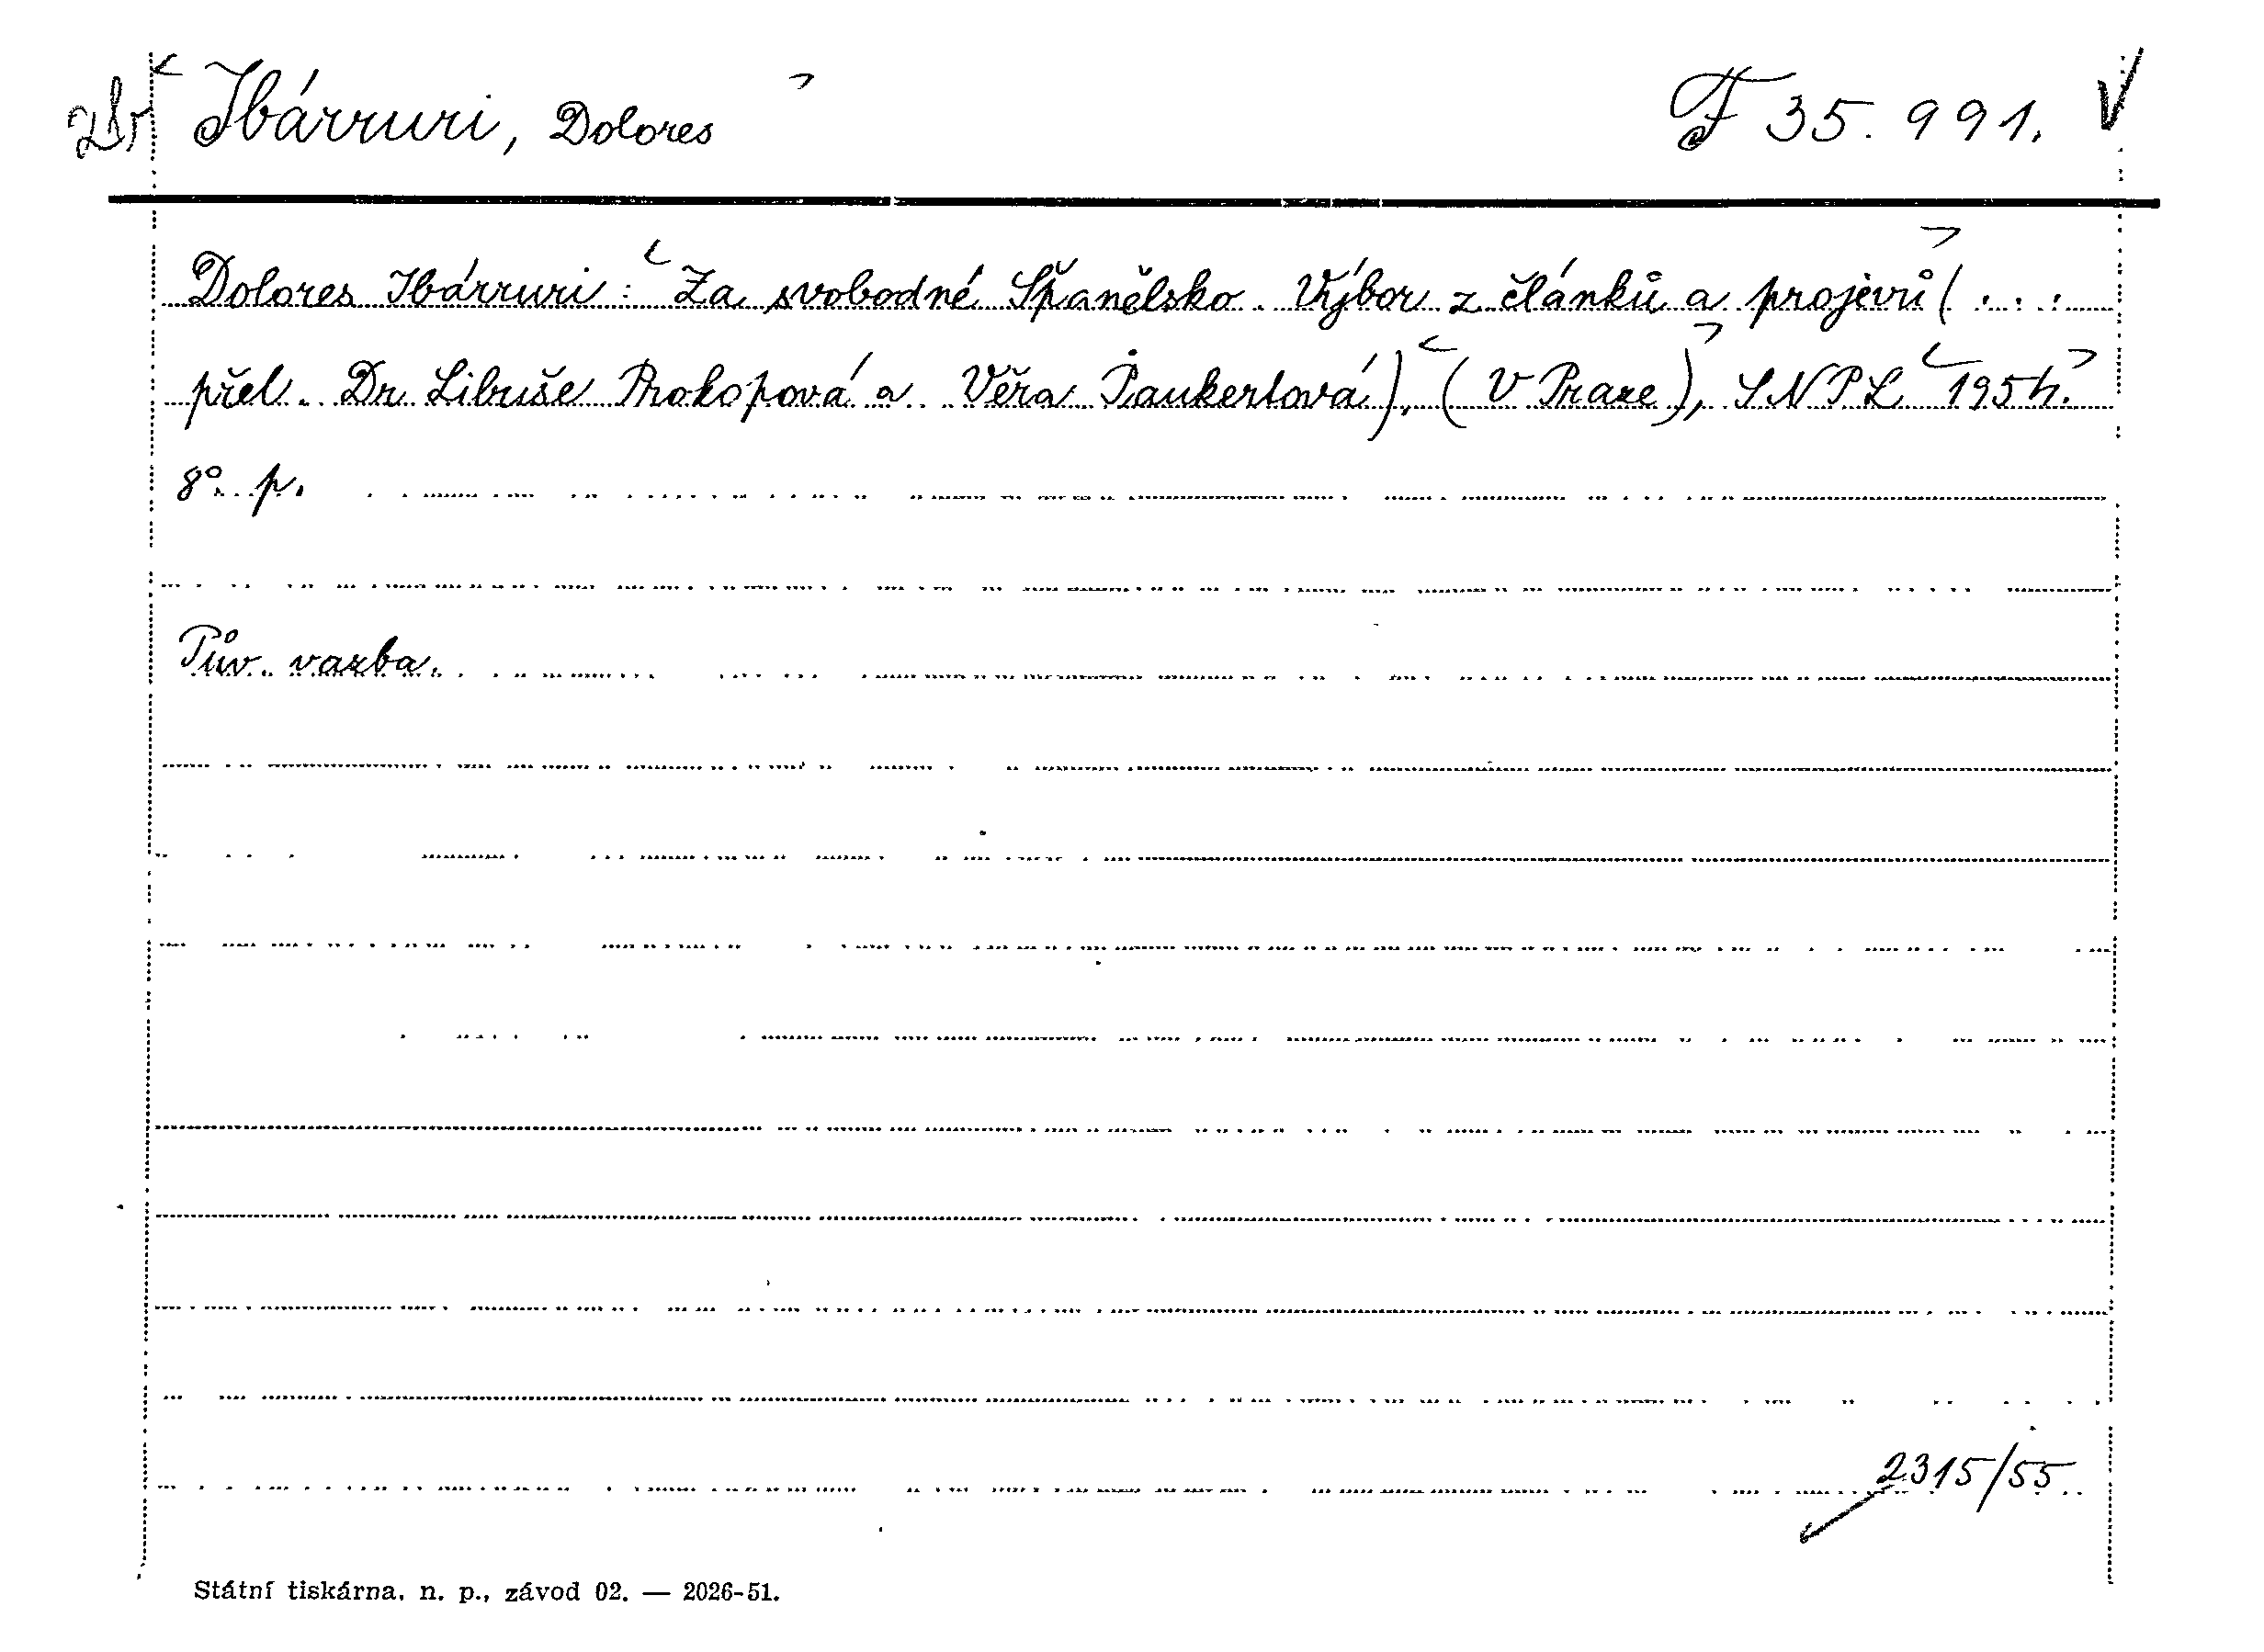 Ibárruri, Dolores F 35.991.
Dolores Ibárruri: Za svobodné Španělsko. Výbor z článků a projevů (...
přel. Dr Libuše Prokopová a Věra Paukertová), (V Praze), SNPL 1954.
8° p.
Pův. vazba.
2315/55
Státní tiskárna, n. p., závod 02. — 2026-51.